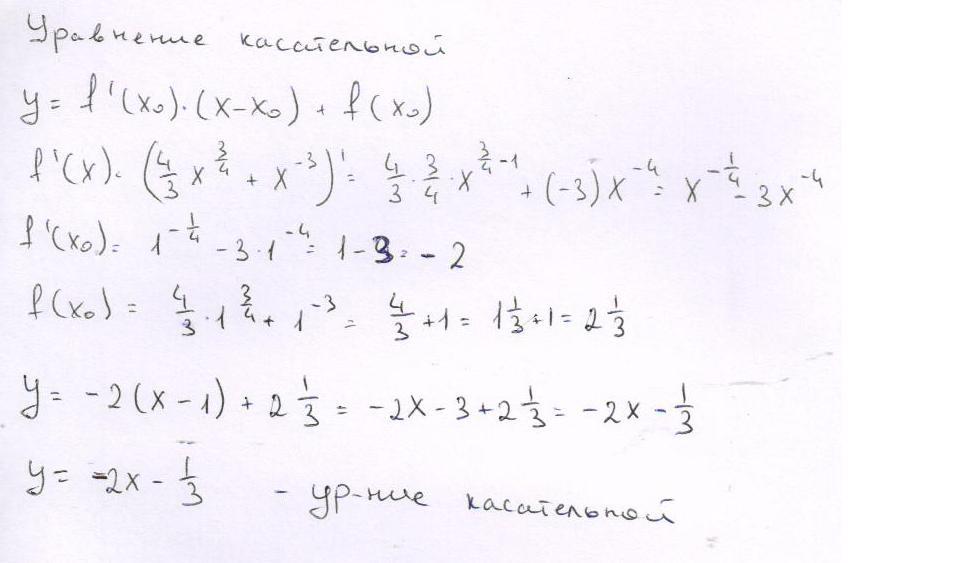 Уравнение касательной
y = f'(x₀)·(x-x₀) + f(x₀)
f'(x) = (4/3 x^(3/4) + x^(-3))' = 4/3 · 3/4 · x^(3/4 - 1) + (-3)x^(-4) = x^(-1/4) - 3x^(-4)
f'(x₀) = 1^(-1/4) - 3·1^(-4) = 1 - 3 = - 2
f(x₀) = 4/3 · 1^(3/4) + 1^(-3) = 4/3 + 1 = 1 1/3 + 1 = 2 1/3
y = -2(x-1) + 2 1/3 = -2x - 3 + 2 1/3 = -2x - 1/3
y = -2x - 1/3 - ур-ние касательной